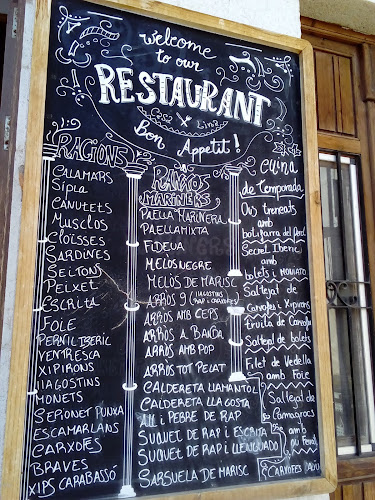 welcome
to our
RESTAURANT
Bon Appetit!
RACIONS
CALAMARS
SÍPIA
CANUTETS
MUSCLOS
CLOÏSSES
SARDINES
SELTONS
PEIXET
ESCRITA
FOIE
PERNIL IBERIC
VENTRESCA
XIPIRONS
LLAGOSTINS
MONETS
SERONET PUNXA
ESCAMARLANS
CARXOFES
BRAVES
XIPS CARABASSÓ
RANXOS
MARINERS
PAELLA MARINERA
PAELLA MIXTA
FIDEUA
MELOS NEGRE
MELÒS DE MARISC
ARROS 9 (LLAGOSTINS RAP I CARXOFES)
ARROS AMB CEPS
ARROS A BANDA
ARROS AMB POP
ARROS TOT PELAT
CALDERETA LLAMANTOL
CALDERETA LLAGOSTA
ALL i PEBRE DE RAP
SUQUET DE RAP i ESCRITA
SUQUET DE RAP i LLENGUADO
SARSUELA DE MARISC
CUINA
de Temporada
Ous trencats
amb
botifarra del Perol
Secret Iberic
amb
bolets i MONIATO
Saltejat de
Carxofes i Xipirons
truita de Carxofes
Saltejat de bolets
Filet de Vedella
amb Foie
Saltejat de
Camagrocs
amb
Ou Ferrat
CARXOFES